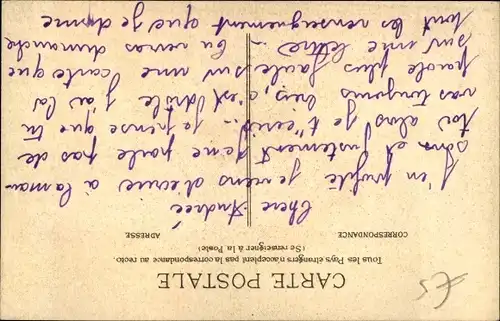 CARTE POSTALE
Tous les Pays étrangers n'acceptent pas la correspondance au recto.
(Se renseigner à la Poste)
CORRESPONDANCE
ADRESSE
Chère Andrée
J'en profite je viens d'écrire à la man
et justement je ne parle pas de
toi alors je t'écris. je pense que tu
vas toujours bien, c'est drôle j'ai la
parole plus facile sur une carte que
sur une lettre. tu verras dimanche
tout les renseignement que je donne